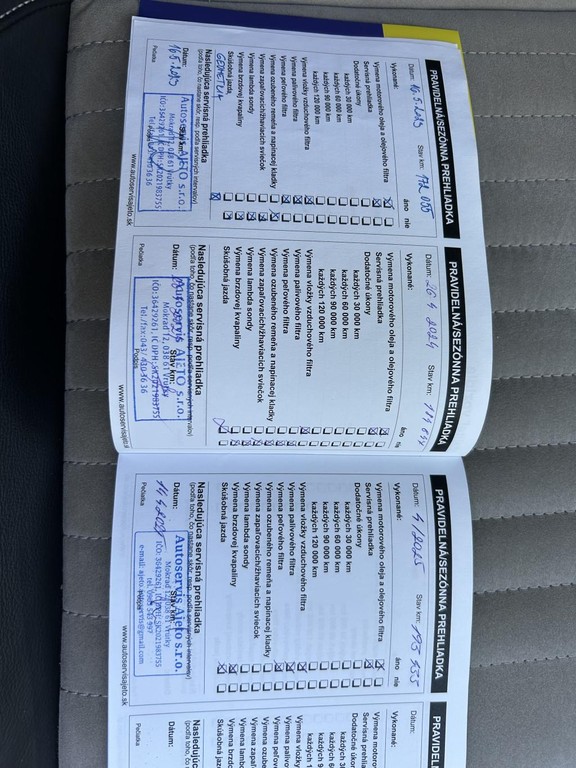 PRAVIDELNÁ/SEZÓNNA PREHLIADKA
Dátum: 16.5.2023 Stav km:
Vykonané: áno nie
Výmena motorového oleja a olejového filtra
Servisná prehliadka
Dodatočné úkony
každých 30 000 km
každých 60 000 km
každých 90 000 km
každých 120 000 km
Výmena vložky vzduchového filtra
Výmena palivového filtra
Výmena peľového filtra
Výmena ozubeného remeňa a napínacej kladky
Výmena zapaľovacích/žhaviacich sviečok
Výmena lambda sondy
Výmena brzdovej kvapaliny
Skúšobná jazda
GEOMETRIA
Nasledujúca servisná prehliadka
(podľa toho, čo nastane skôr, resp. podľa servisných intervalov)
Dátum: Stav km:
16.5.2023
Autoservis AJETO s.r.o.
Mokraď 12, 038 61 Vrútky
IČO: 36429261, IČ DPH: SK2021983755
Pečiatka
www.autoservisajeto.sk
PRAVIDELNÁ/SEZÓNNA PREHLIADKA
Dátum: 2024 Stav km:
Vykonané: áno
Výmena motorového oleja a olejového filtra
Servisná prehliadka
Dodatočné úkony
každých 30 000 km
každých 60 000 km
každých 90 000 km
každých 120 000 km
Výmena vložky vzduchového filtra
Výmena palivového filtra
Výmena peľového filtra
Výmena ozubeného remeňa a napínacej kladky
Výmena zapaľovacích/žhaviacich sviečok
Výmena lambda sondy
Výmena brzdovej kvapaliny
Skúšobná jazda
Nasledujúca servisná prehliadka
(podľa toho, čo nastane skôr, resp. podľa servisných intervalov)
Dátum: Stav km:
Autoservis AJETO s.r.o.
Mokraď 12, 038 61 Vrútky
IČO: 36429261, IČ DPH: SK2021983755
Pečiatka Podpis
www.autoservisajeto.s
PRAVIDELNÁ/SEZÓNNA PREHLIADKA
Dátum: /2025 Stav km: 195 535
Vykonané: áno nie
Výmena motorového oleja a olejového filtra
Servisná prehliadka
Dodatočné úkony
každých 30 000 km
každých 60 000 km
každých 90 000 km
každých 120 000 km
Výmena vložky vzduchového filtra
Výmena palivového filtra
Výmena peľového filtra
Výmena ozubeného remeňa a napínacej kladky
Výmena zapaľovacích/žhaviacich sviečok
Výmena lambda sondy
Výmena brzdovej kvapaliny
Skúšobná jazda
Nasledujúca servisná prehliadka
(podľa toho, čo nastane skôr, resp. podľa servisných intervalov)
Dátum: Stav km:
Autoservis Ajeto s.r.o.
Mokraď 12, 038 61 Vrútky
IČO: 36429261, IČ DPH: SK2021983755
Pečiatka
www.autoservisajeto.sk
PRAVIDELNÁ
Dátum:
Vykonané:
Výmena motoro
Servisná prehl
Dodatočné ú
každých 30
každých 60
každých 9
každých 1
Výmena vl
Výmena palivo
Výmena peľov
Výmena ozube
Výmena zapaľ
Výmena lambd
Výmena brzdo
Skúšobná jazd
Nasledujúca s
(podľa toho, čo nast
Dátum:
Pečiatka